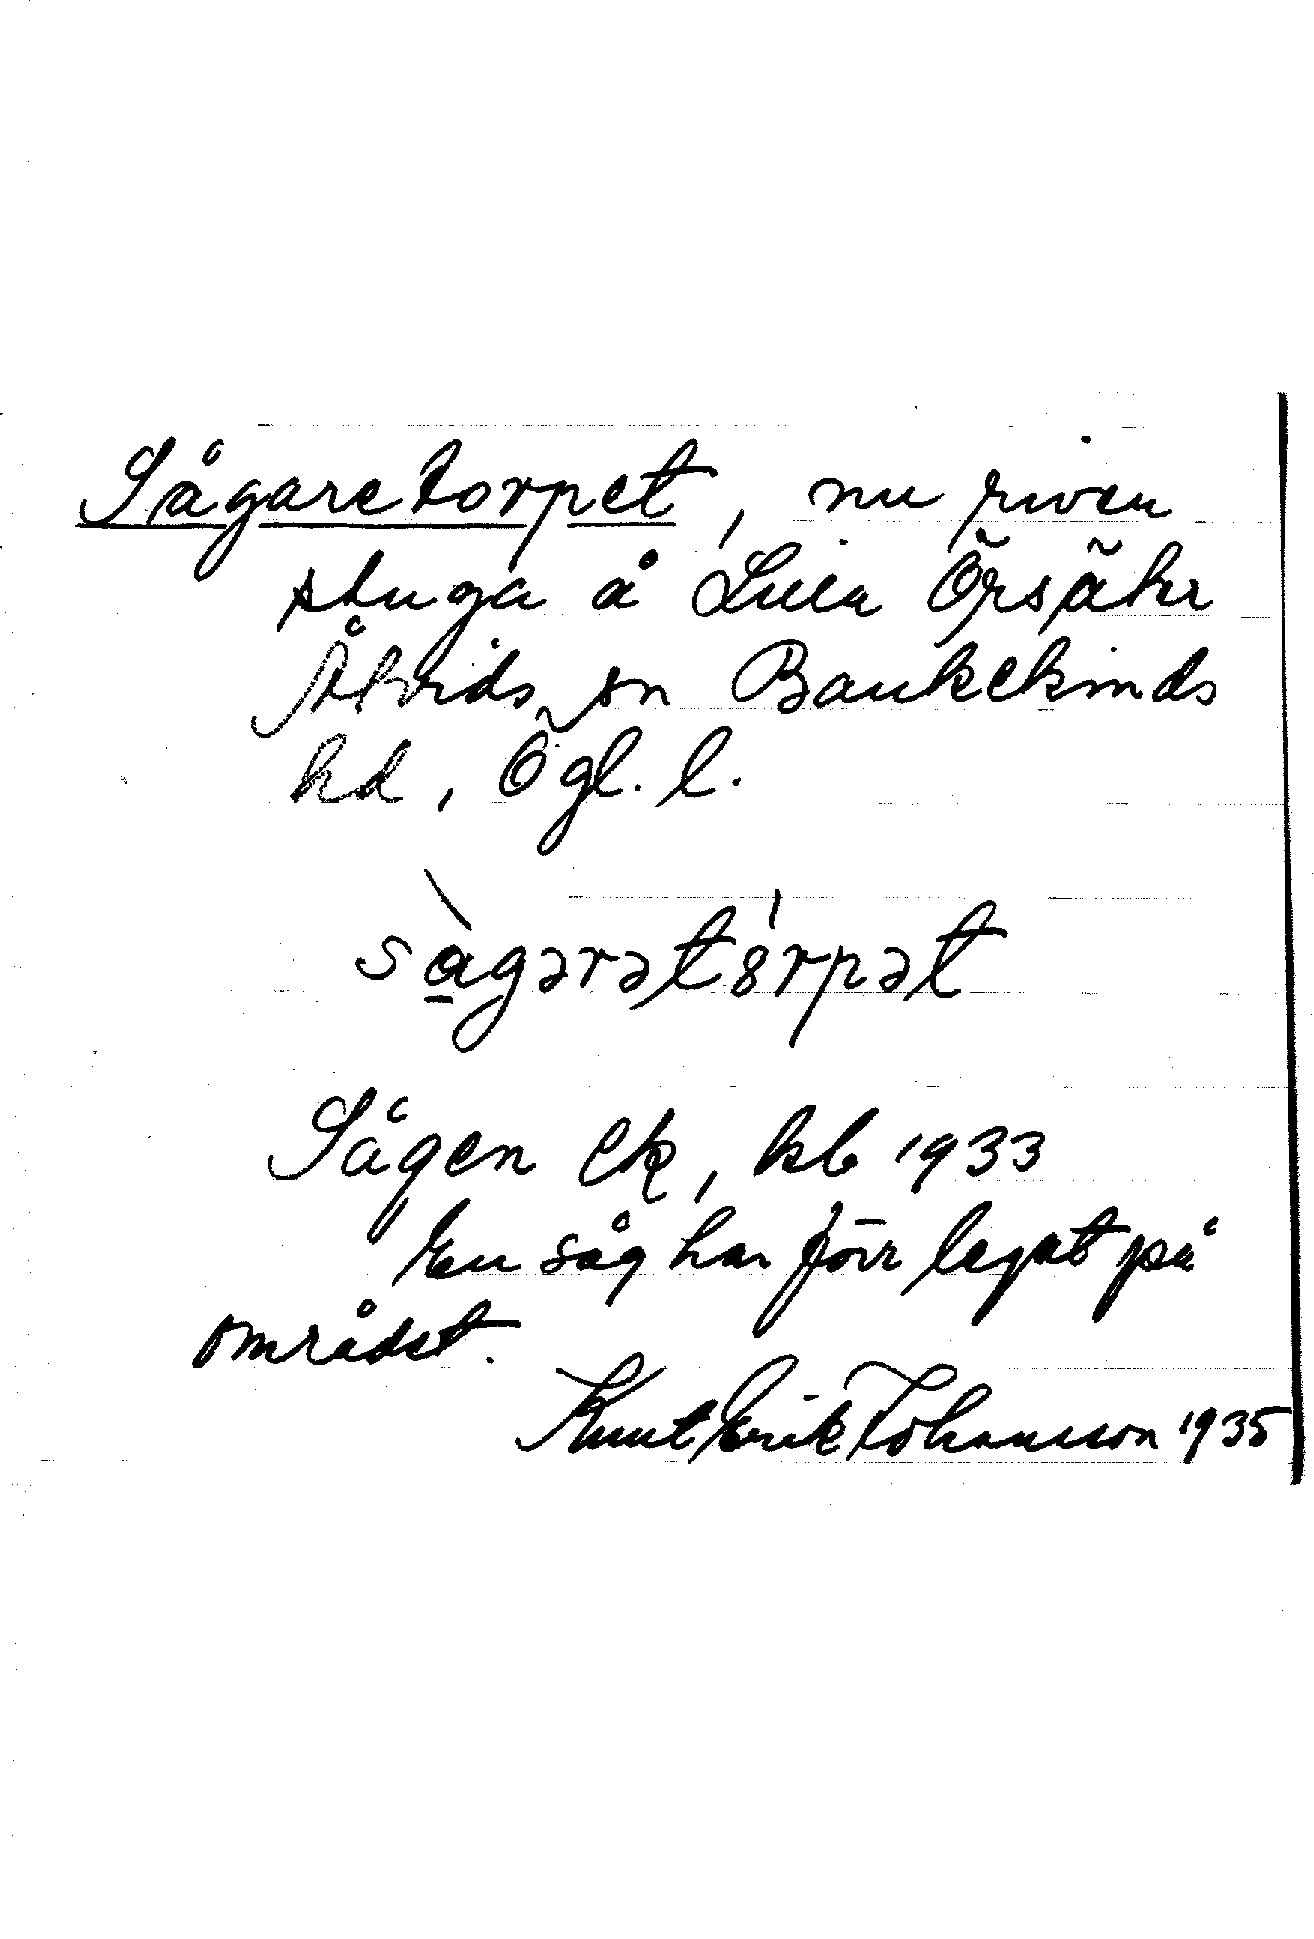 Sågaretorpet, nu riven
stuga å Lilla Örsätter
Åtvids sn Bankekinds
hd, Ögl. l.
sàgərətórpət
Sågen ek, kb 1933
En såg har förr legat på
området.
Knut Erik Johansson 1935